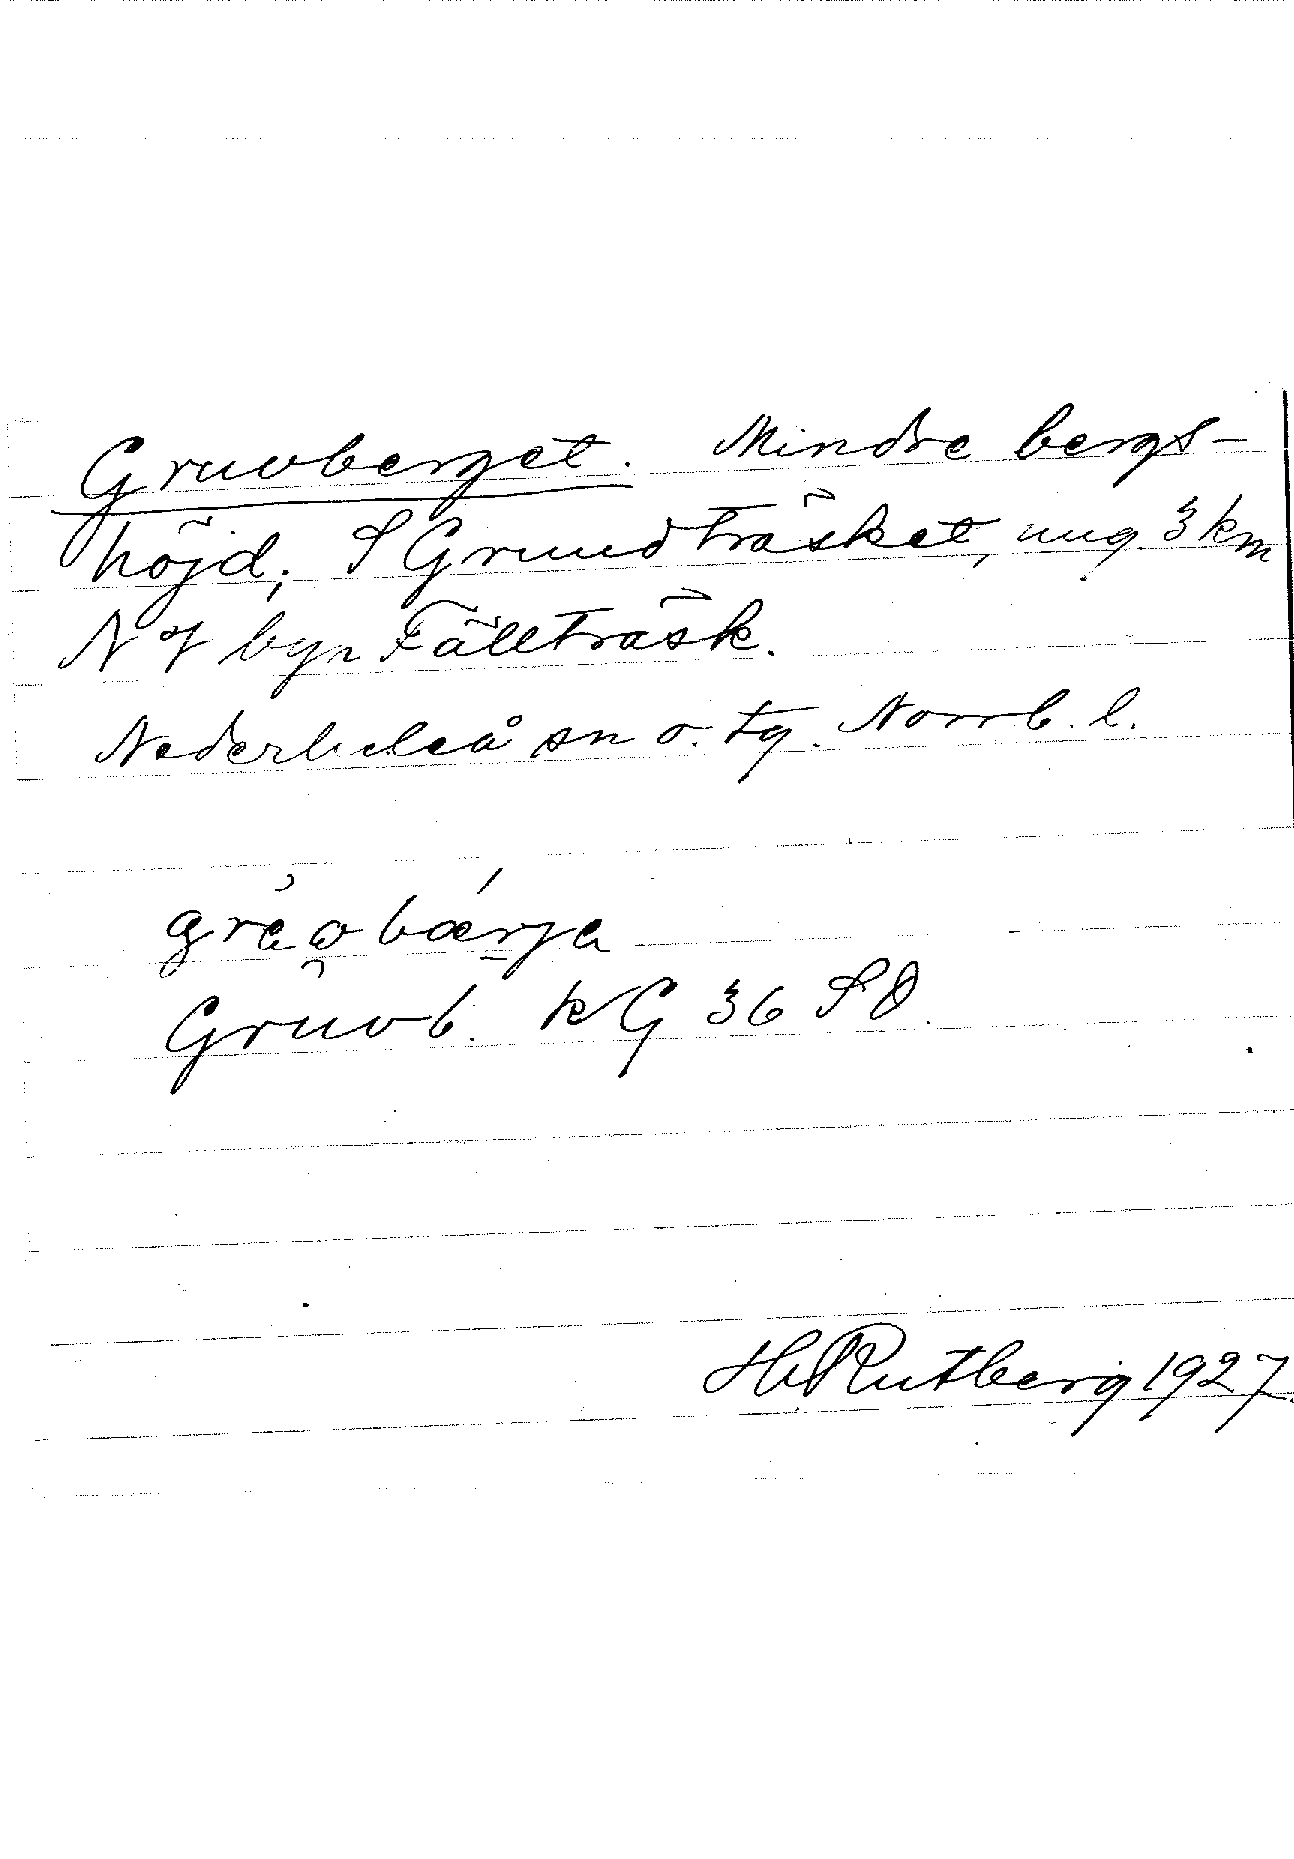 Gruvberget. Mindre bergs-
höjd; S Grundträsket, ung. 3 km
N of byn Fällträsk.
Nederluleå sn o. tg. Norrb. l.
Gruvb. KG 36 SO.
H. Rutberg 1927.